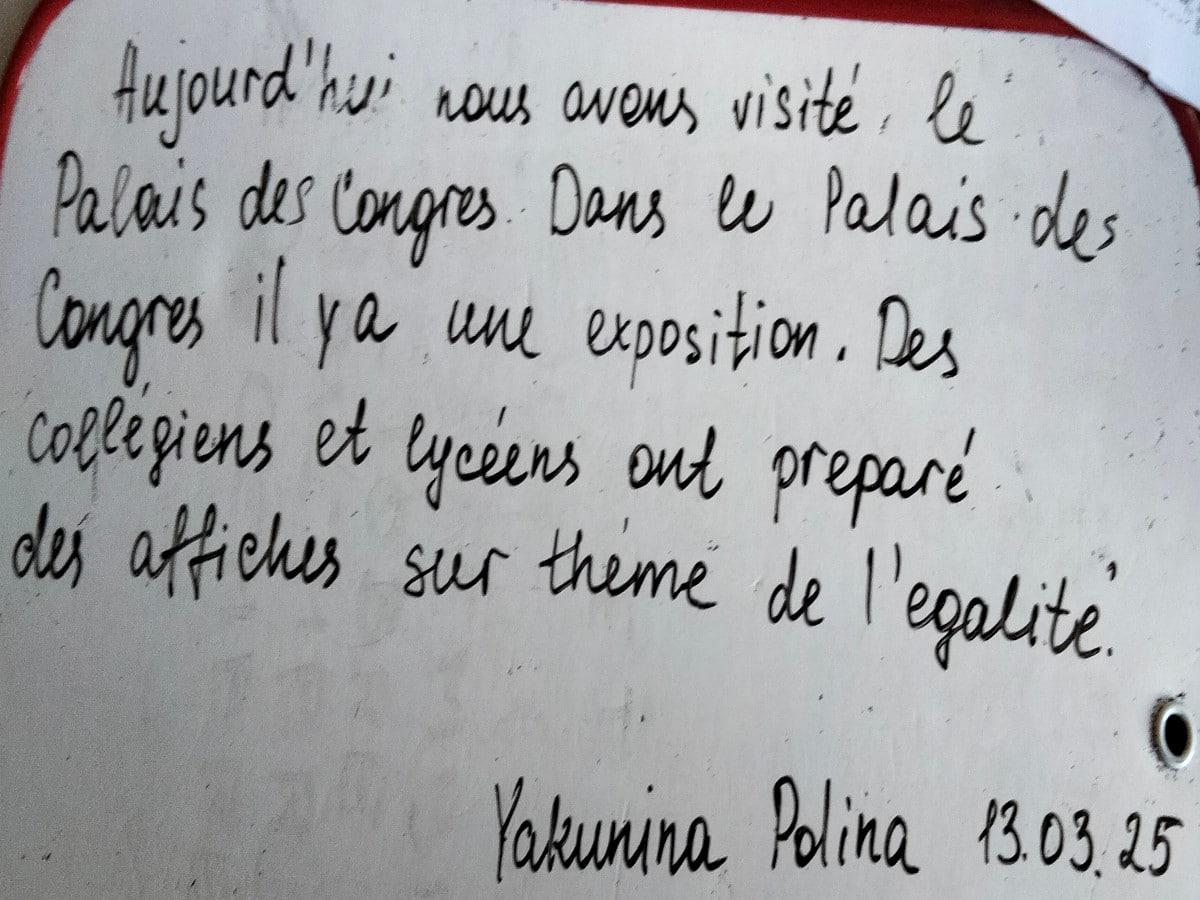 Aujourd'hui nous avons visité, le
Palais des Congres. Dans le Palais des
Congres il y a une exposition. Des
collégiens et lycéens ont preparé
des affiches sur théme de l'egalité.
Yakunina Polina 13.03.25